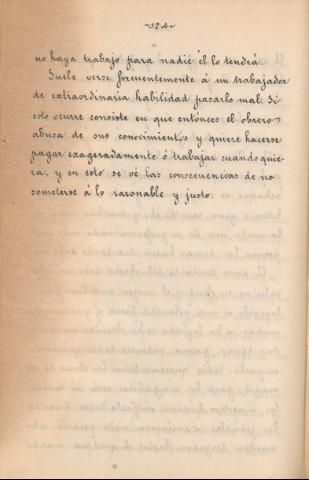 ~124~
no haya trabajo para nadie él lo tendrá.
Suele verse frecuentemente á un trabajador
de extraordinaria habilidad pasarlo mal. Si
esto ocurre consiste en que entónces el obrero
abusa de sus conocimientos y quiere hacerse
pagar exageradamente ó trabajar cuando quie-
ra, y en esto se vé las consecuencias de no
someterse á lo razonable y justo.